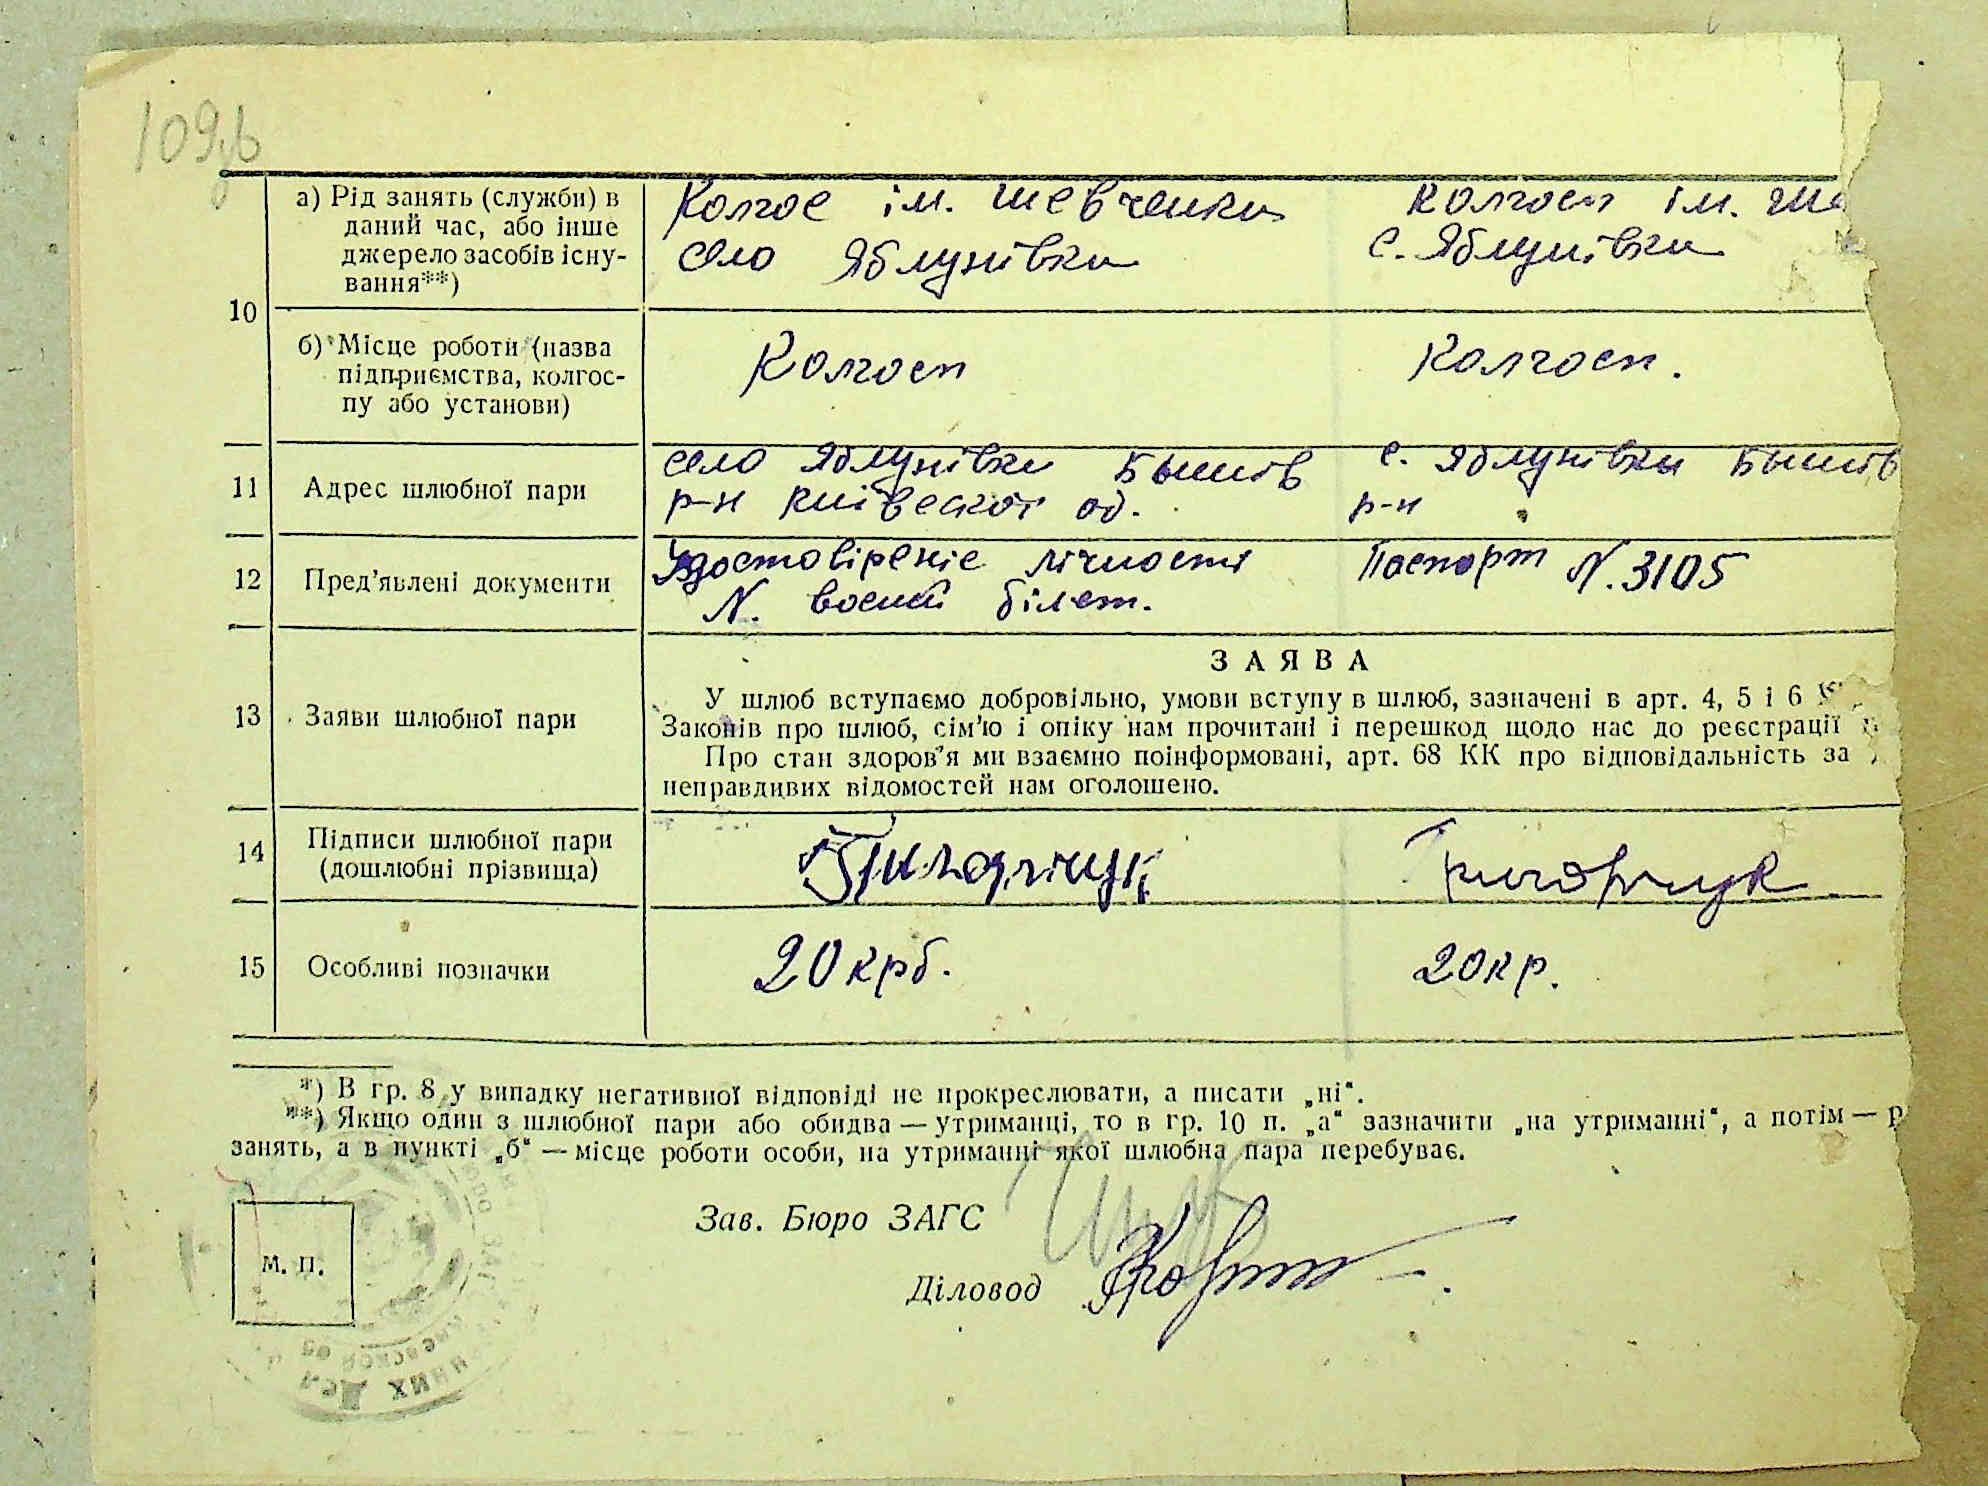 109
а) Рід занять (служби) в
даний час, або інше
джерело засобів існу-
вання**)
Колгос ім. Шевченки
село Яблунівки
Колгосп ім. Ше
с. Яблунівки
10
б) Місце роботи (назва
підприємства, колгос-
пу або установи)
Колгосп
Колгосп.
11
Адрес шлюбної пари
село Яблунівки Бышів
р-н Київскої об.
с. Яблунівки Бышів
р-н
12
Пред’явлені документи
Удостовіреніе лічності
N. воений білет.
Паспорт N. 3105
13
Заяви шлюбної пари
ЗАЯВА
У шлюб вступаємо добровільно, умови вступу в шлюб, зазначені в арт. 4, 5 і 6
Законів про шлюб, сім’ю і опіку нам прочитані і перешкод щодо нас до реєстрації
Про стан здоров’я ми взаємно поінформовані, арт. 68 КК про відповідальність за
неправдивих відомостей нам оголошено.
14
Підписи шлюбної пари
(дошлюбні прізвища)
15
Особливі позначки
20 крб.
20 кр.
*) В гр. 8 у випадку негативної відповіді не прокреслювати, а писати „ні“.
**) Якщо один з шлюбної пари або обидва — утриманці, то в гр. 10 п. „а“ зазначити „на утриманні“, а потім — р
занять, а в пункті „б“ — місце роботи особи, на утриманні якої шлюбна пара перебуває.
Зав. Бюро ЗАГС
м. п.
Діловод